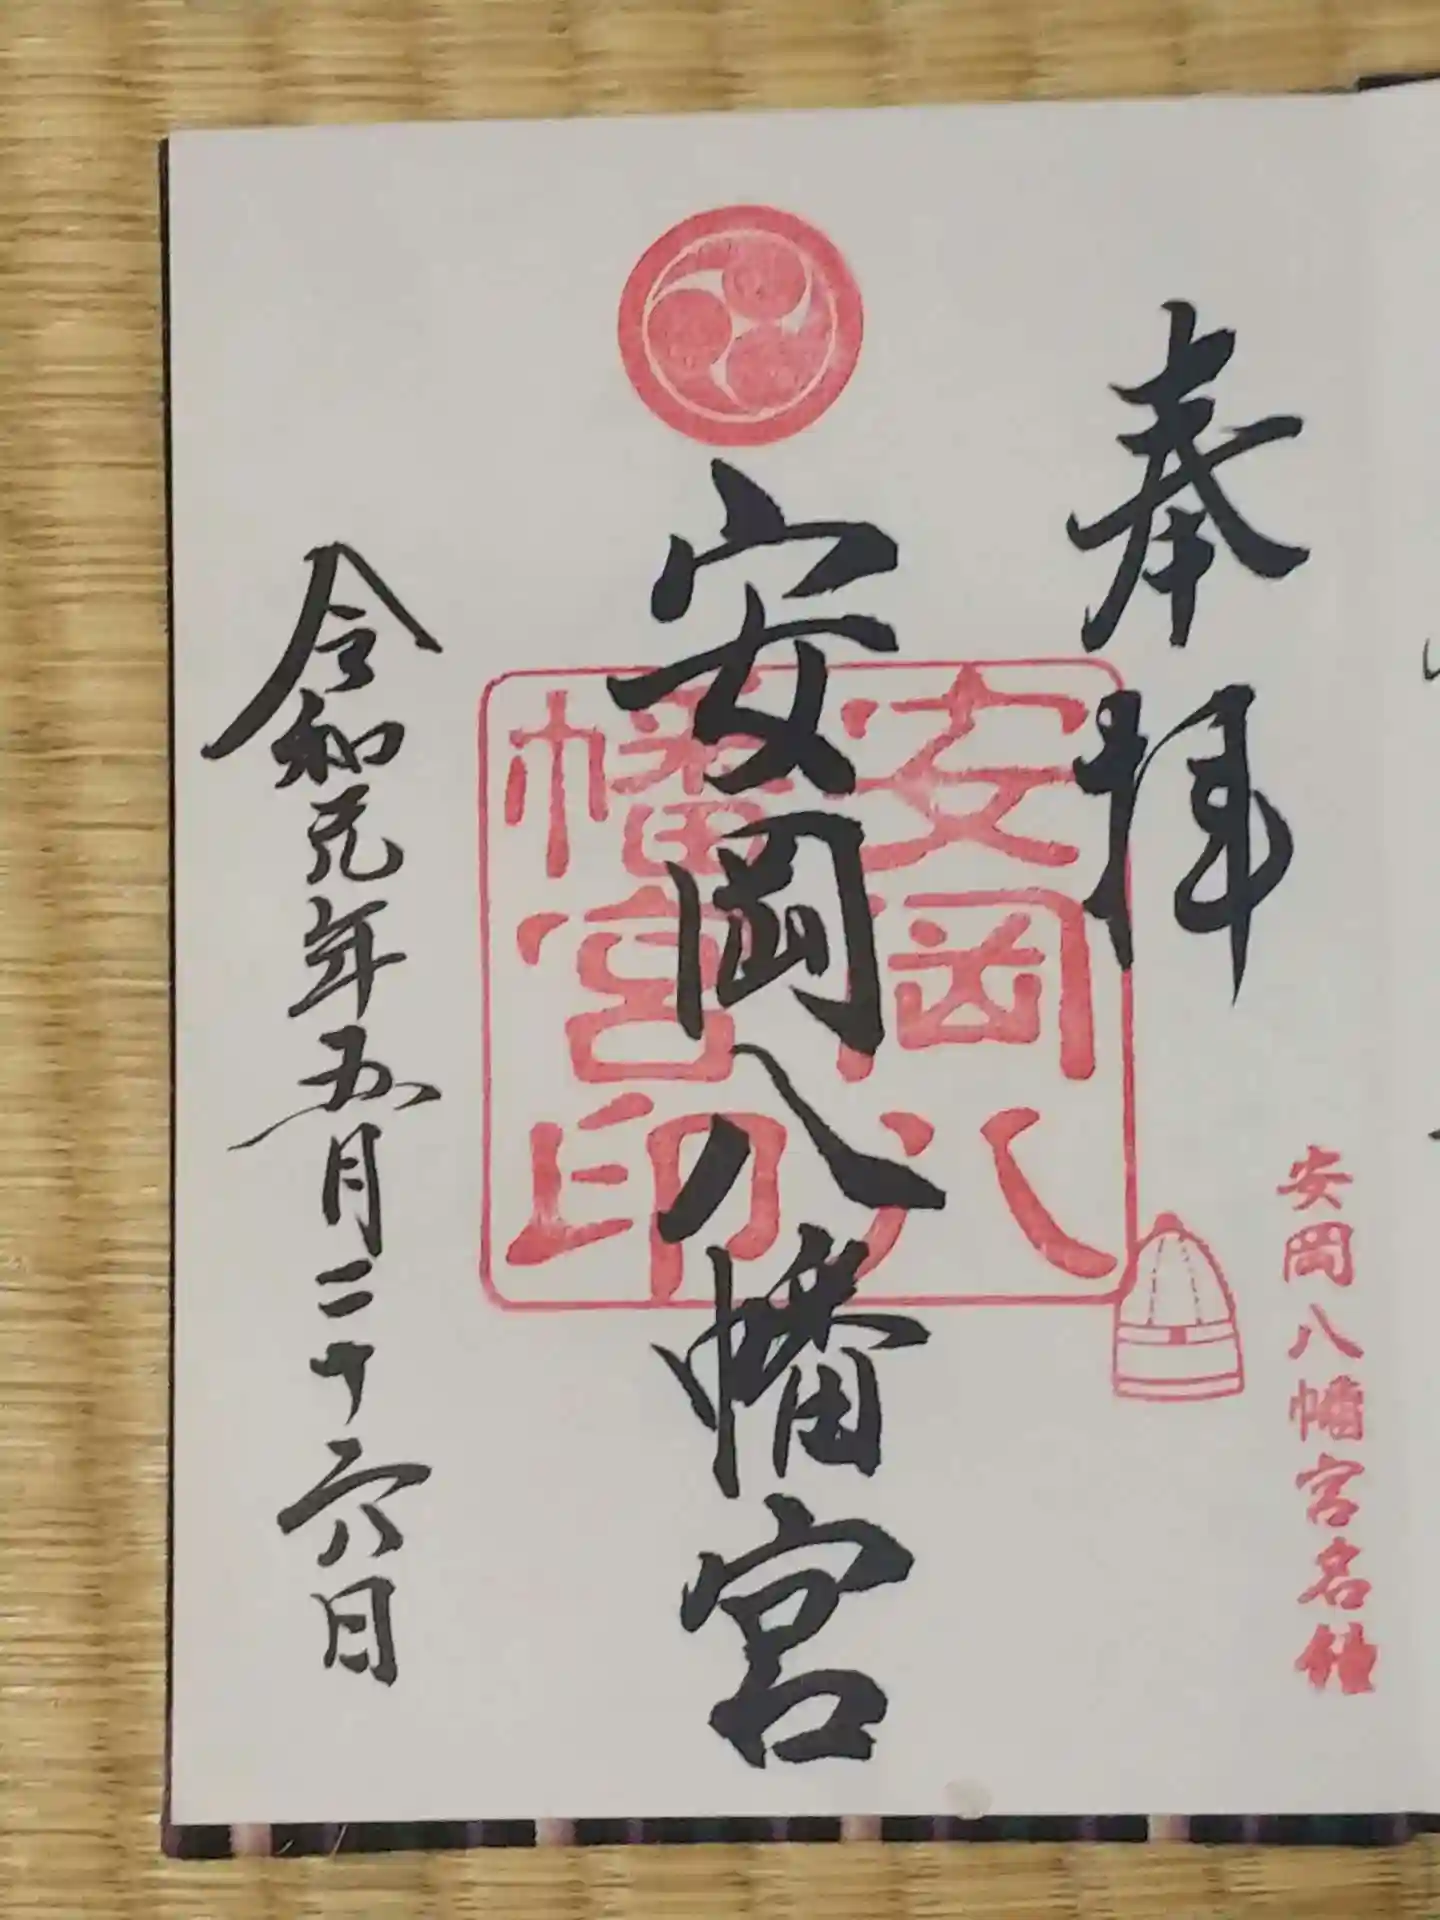 奉拝
安岡八幡宮名
安岡八幡宮
安岡八幡宮印
令和元年五月二十六日